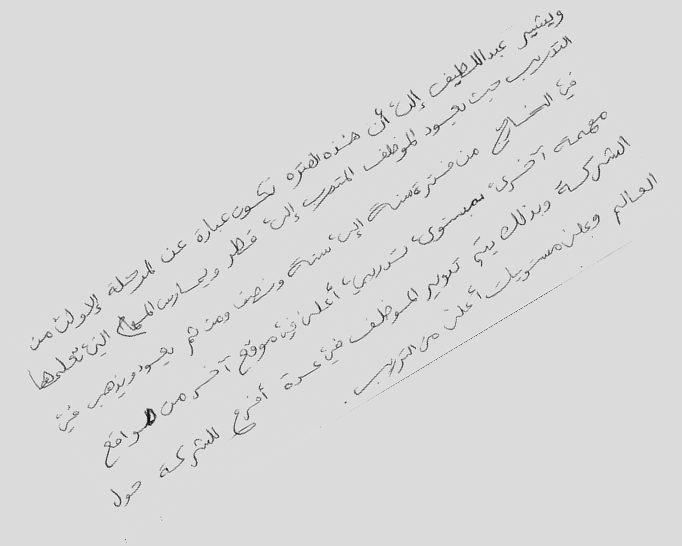 ويشير عبداللطيف إلى أن هذه الفترة تكون عبارة عن المرحلة الأولى من
التدريب حيث يعود الموظف المتدرب إلى قطر ويمارس المهام التي تعلمها
في الخارج من فترة سنة إلى سنة ونصف ومن ثم يعود ويذهب في
مهمة آخرى بمستوى تدريبي أعلى في موقع آخر من المواقع
الشركة وبذلك يتم تدوير الموظف في عدة أفرع للشركة حول
العالم وعلى مستويات أعلى من التدريب .